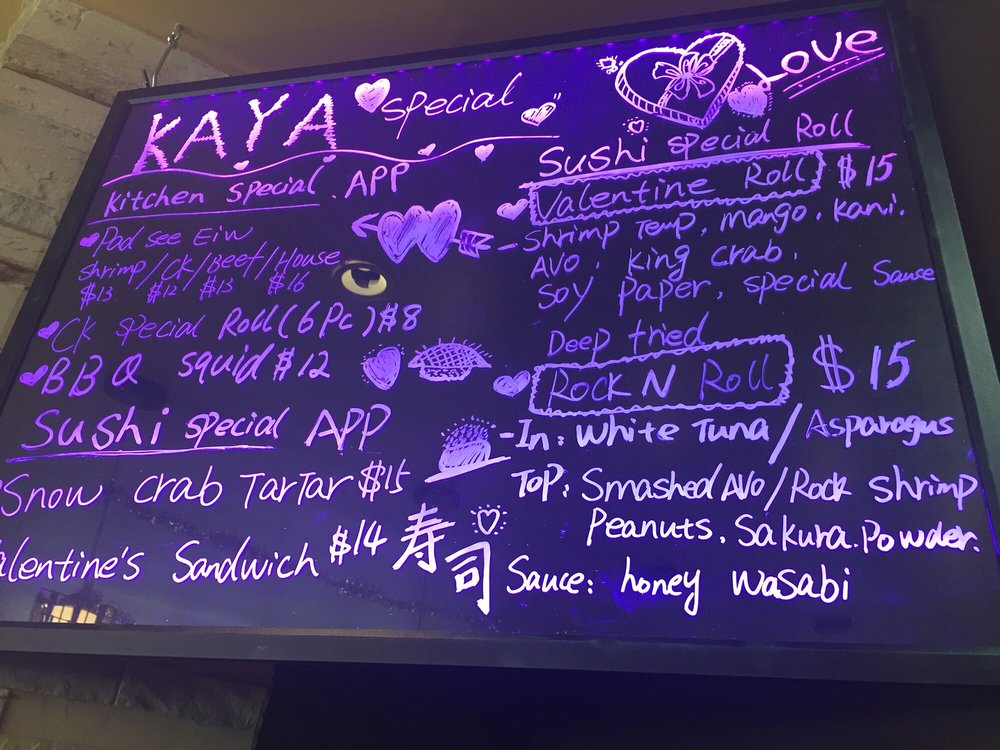 KAYA special
kitchen special APP
Pad see Eiw
Shrimp/CK/Beef/House
$13 $12 $13 $16
CK special Roll (6Pc) $8
BBQ squid $12
Sushi special APP
Snow crab TarTar $15
alentine's Sandwich $14
寿司
Love
Sushi special Roll
Valentine Roll $15
- Shrimp Temp, mango, kani,
Avo, king crab,
Soy paper, special Sauce
Deep fried
Rock N Roll $15
- In: White Tuna/Asparagus
Top: Smashed Avo/Rock shrimp
Peanuts. Sakura. Powder.
Sauce: honey wasabi